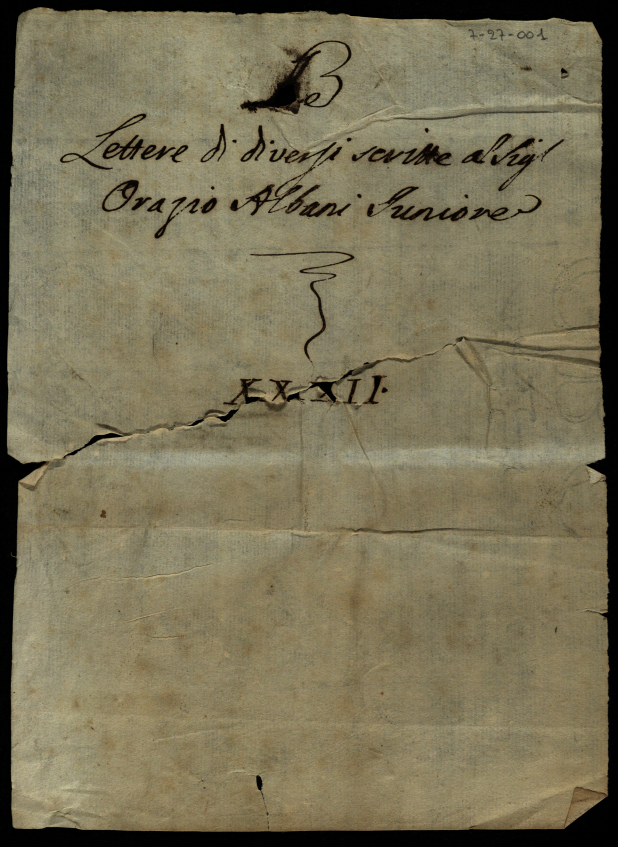 7-27-001
B
Lettere di diversi scritte al Sig.r
Orazio Albani Juniore
XXXII.